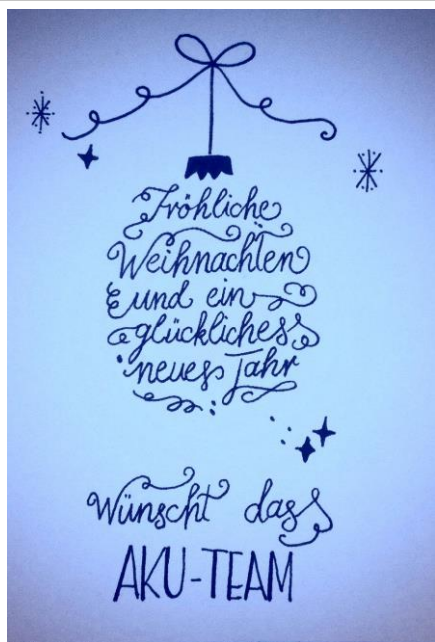 Fröhliche
Weihnachten
und ein
glückliches
neues Jahr
Wünscht das
AKU-TEAM